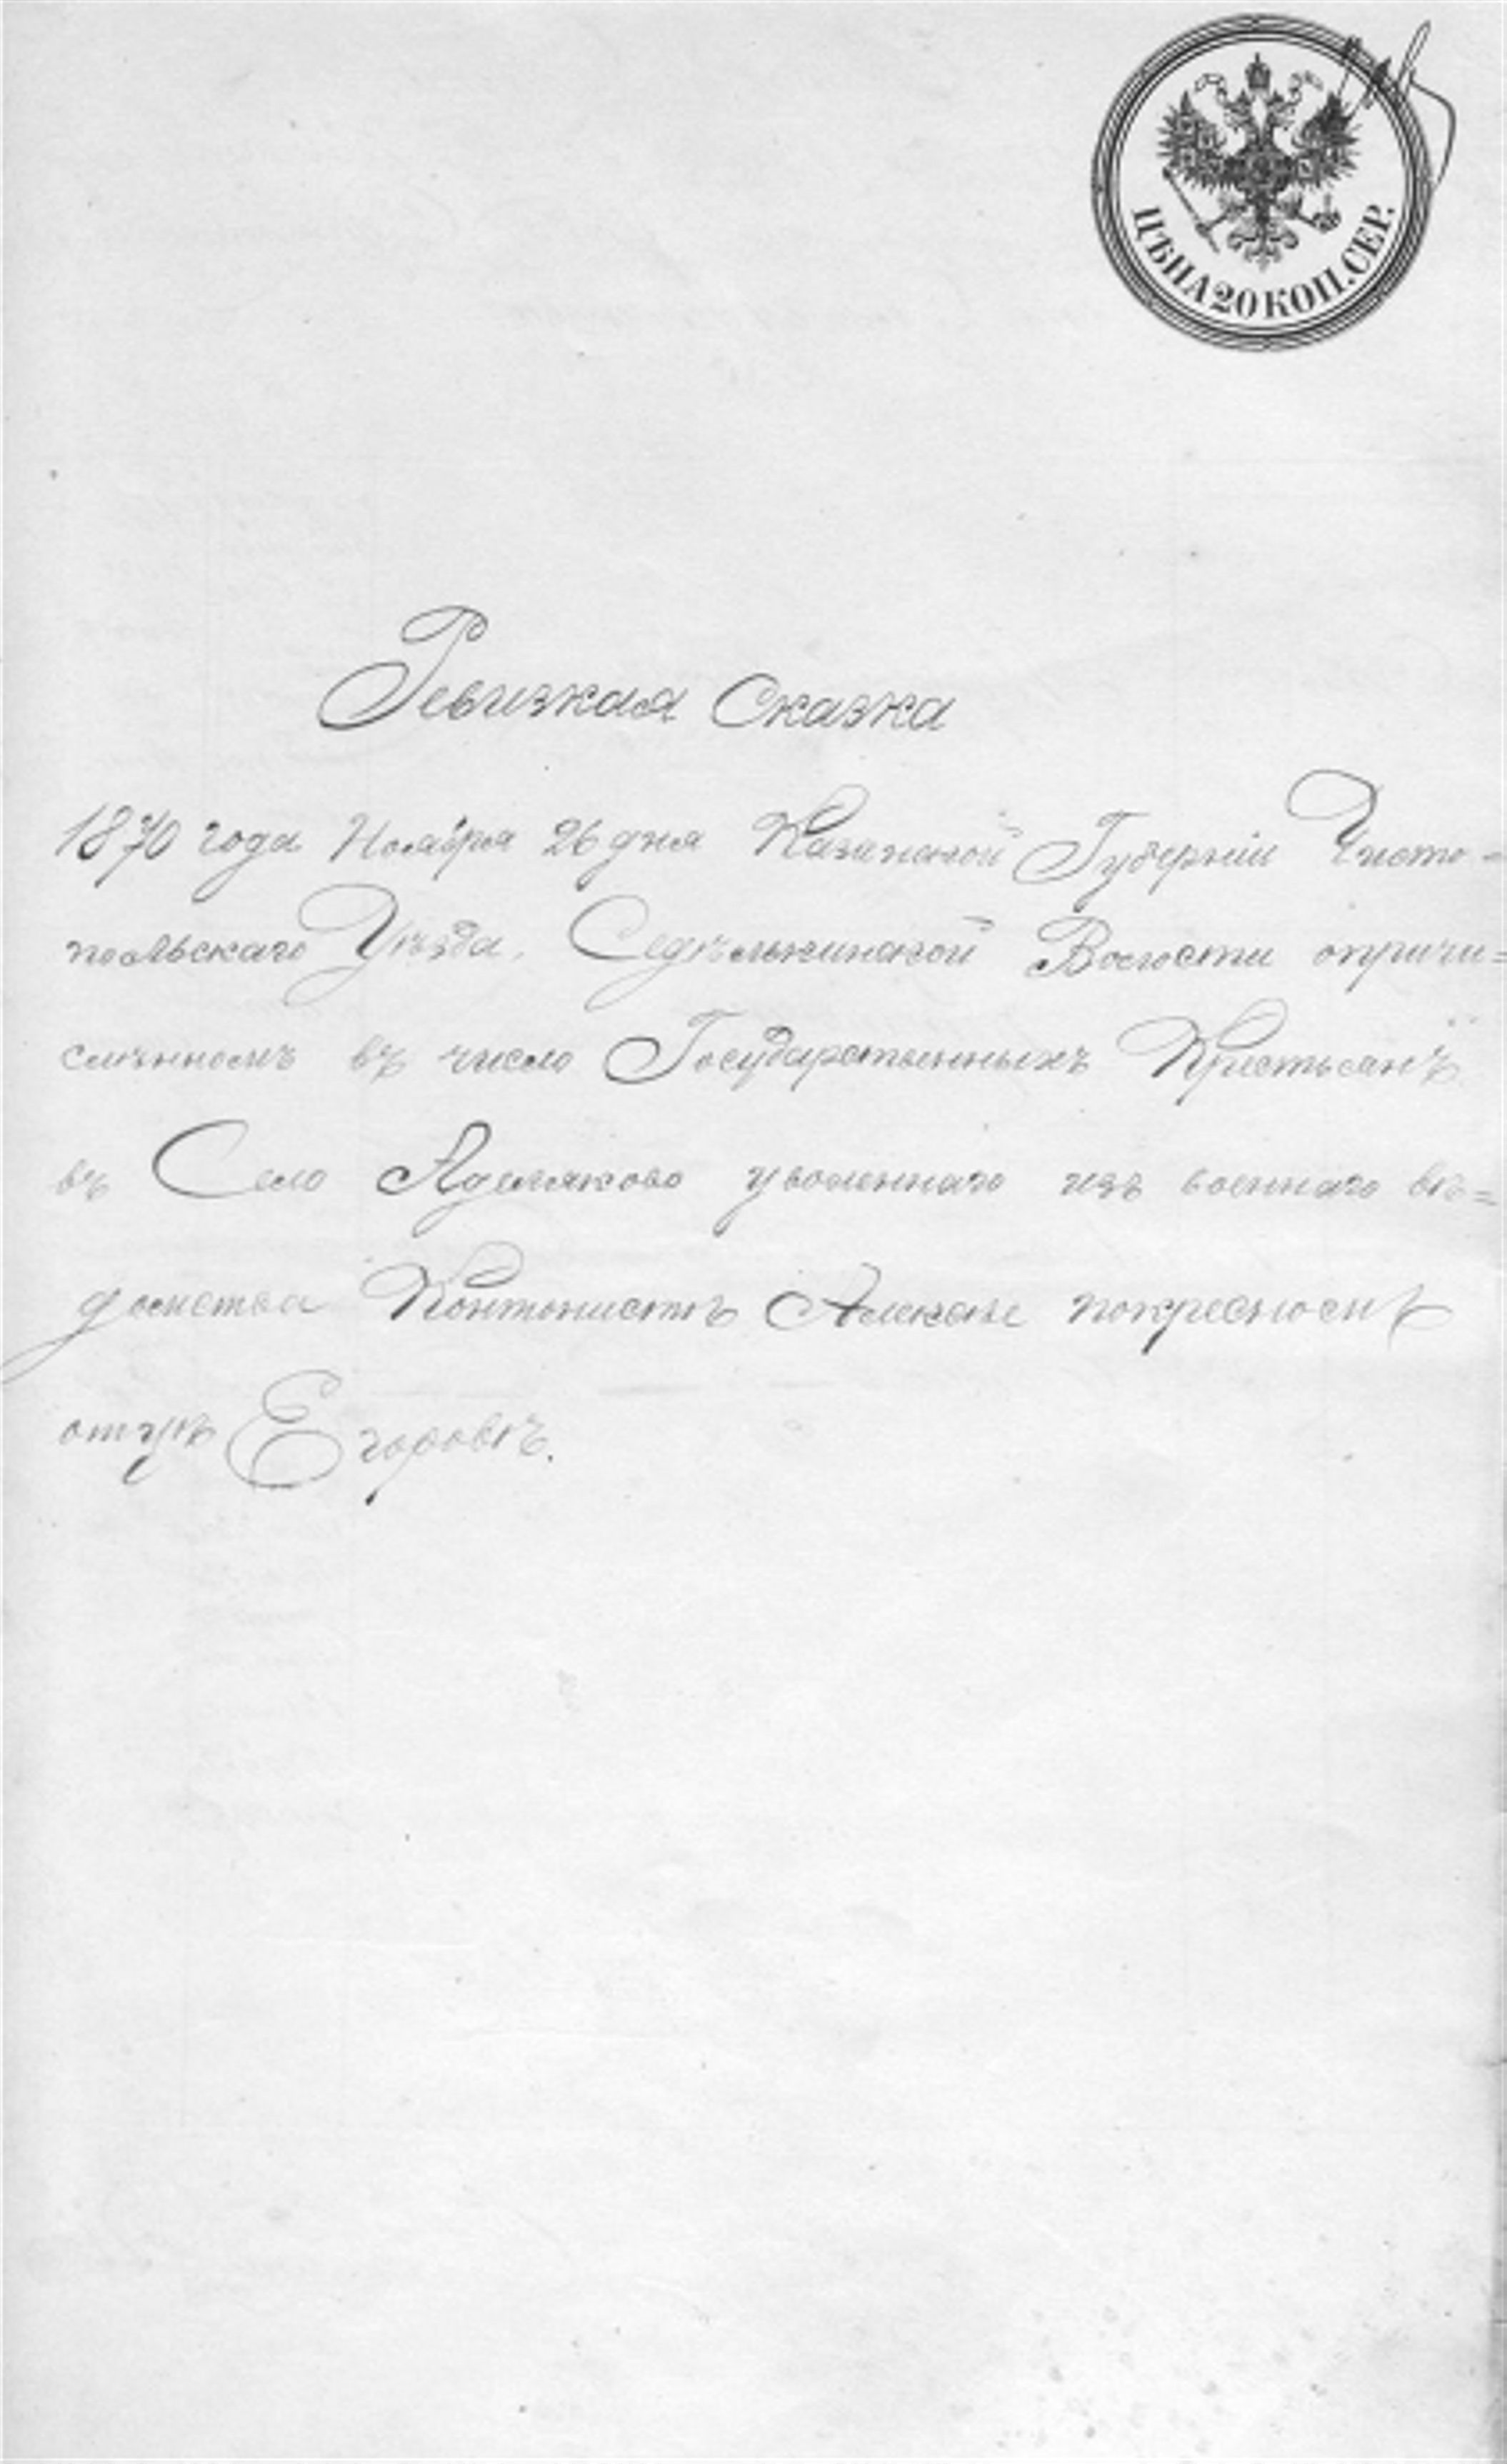 ЦѢНА 20 КОП. СЕР.
Ревизкая Сказка
1870 года Ноября 26 дня Казанской Губерніи Чисто-
польскаго Уѣзда, Седѣлькинской Волости опричи=
сленномъ въ число Государственныхъ Крестьянъ
въ Село Аделяково уволеннаго изъ военнаго вѣ=
домства Контонистѣ Алексѣе покресному
отцѣ Егоровѣ.